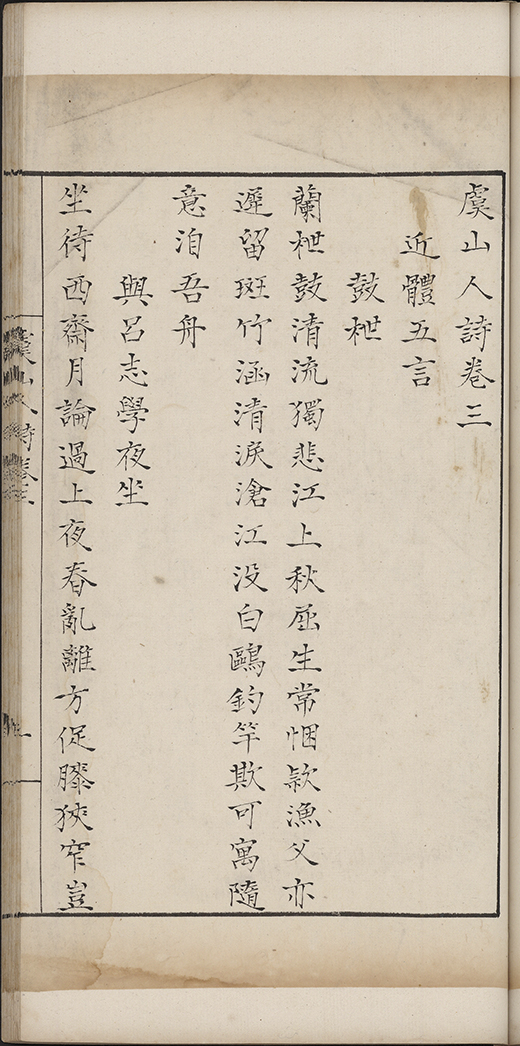 虞山人詩卷三
近體五言
鼓枻
蘭枻鼓清流獨悲江上秋屈生常悃款漁父亦
遲留斑竹涵清淚滄江没白鷗釣竿欺可寓隨
意泊吾舟
與呂志學夜坐
坐待西齋月論過上夜舂亂離方促膝狹窄豈
虞山人詩卷三
一